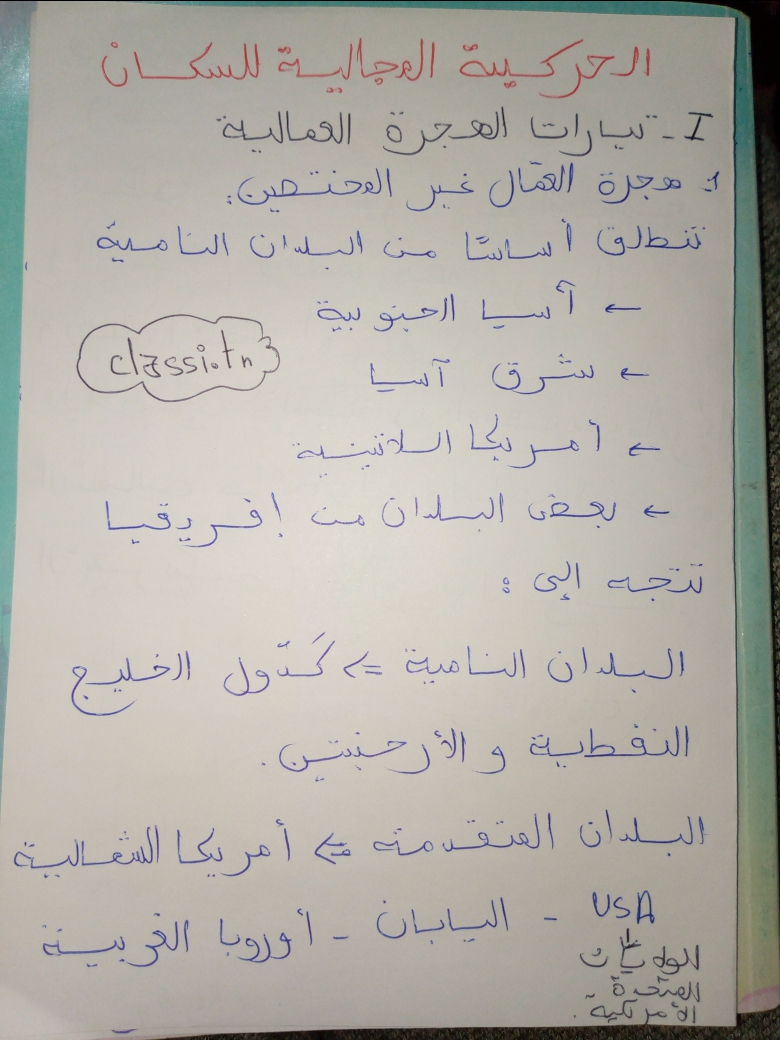 الحركية المجالية للسكان
I - تيارات الهجرة العمالية
1 هجرة العمّال غير المختصين:
تنطلق أساسًا من البلدان النامية
← آسيا الجنوبية
classi.tn
← شرق آسيا
← أمريكا اللاتينية
← بعض البلدان من إفريقيا
تتجه إلى :
البلدان النامية <= كدول الخليج
النفطية و الأرجنتين.
البلدان المتقدمة <= أمريكا الشمالية
USA - اليابان - أوروبا الغربية
الولايات
المتحدة
الأمريكية.